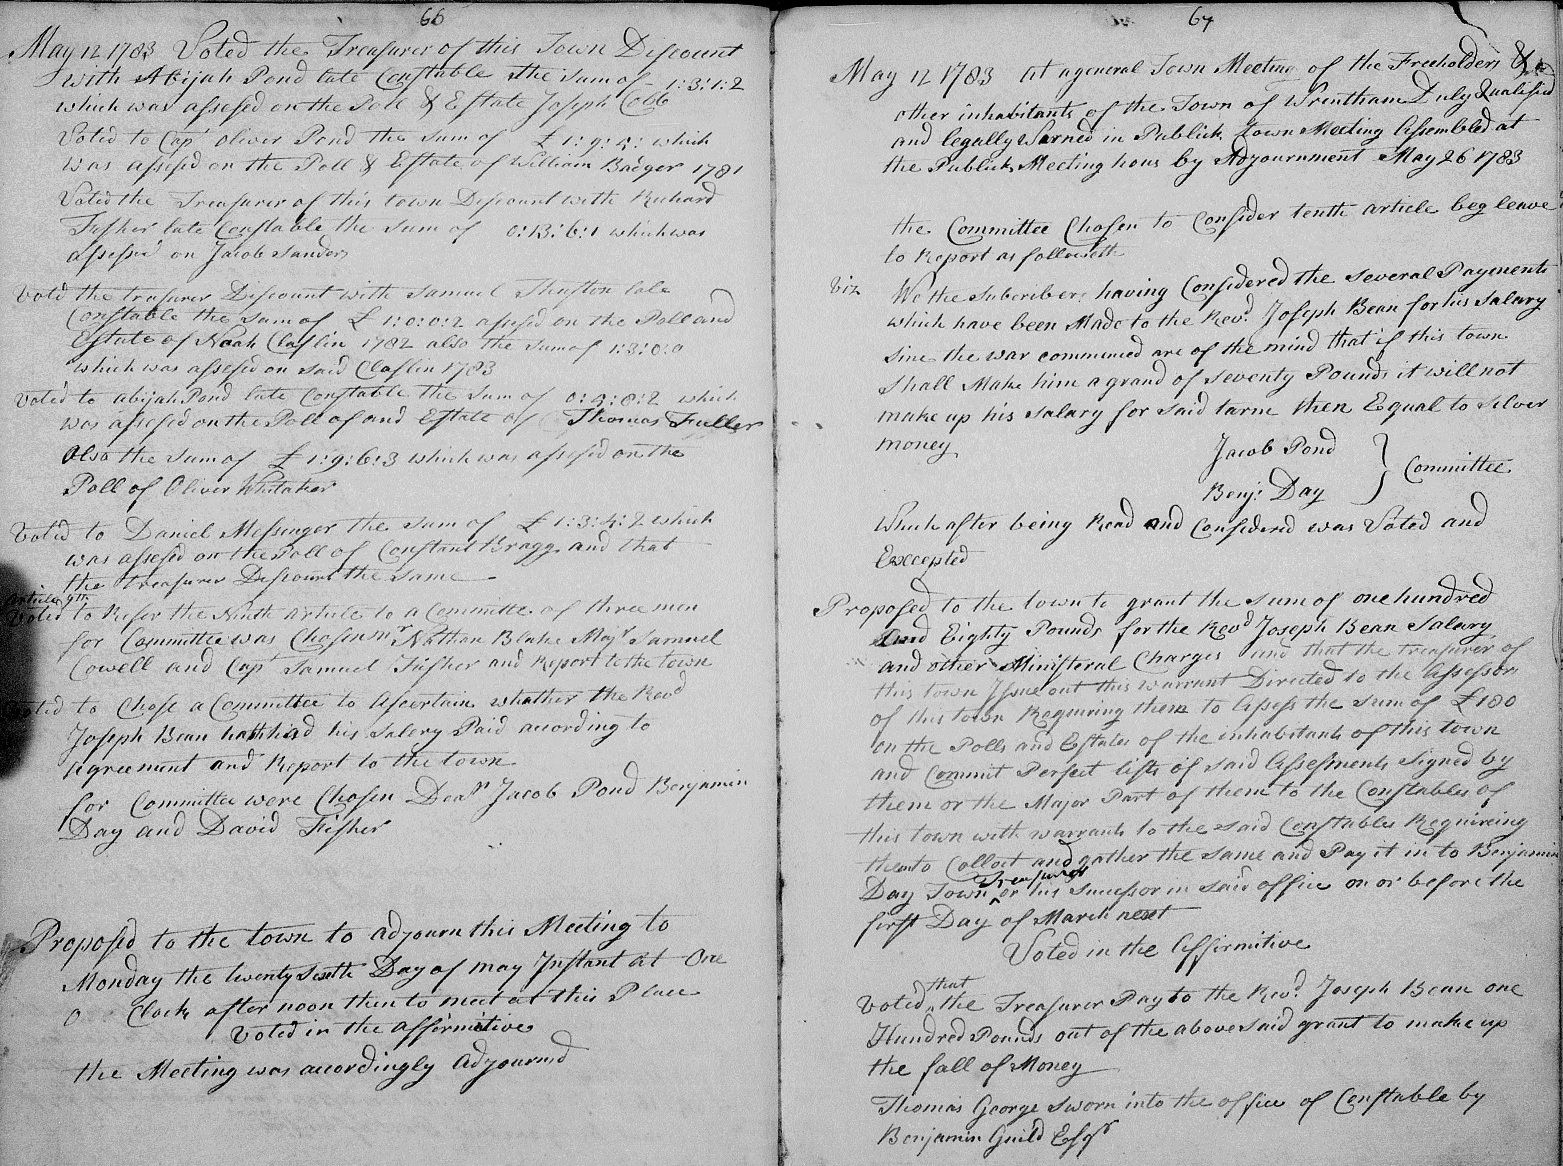 66
May 12 1783 Voted the Treasurer of this Town Discount
with Abijah Pond late Constable the sum of 1:3:1:2
which was assesed on the Poll & Estate Joseph Cobb
Voted to Cap^t Oliver Pond the sum of £ 1:9:5: which
was assesed on the Poll & Estate of William Badger 1781
Voted the Treasurer of this town Discount with Richard
Fisher late Constable the sum of 0:13:6:1 which was
assesed on Jacob Sanders
Voted the tresurer Discount with Samuel Thurston late
Constable the sum of £ 1:0:0:2 assesed on the Poll and
Estate of Noah Claflin 1782 also the sum of 1:3:0:0
which was assesed on said Claflin 1783
Voted to abijah Pond late Constable the sum of 0:9:8:2 which
was assesed on the Poll of and Estate of Thomas Fuller
Also the sum of £ 1:9:6:3 which was assesed on the
Poll of Oliver Whitaker
Voted to Daniel Messenger the sum of £ 1:3:4:2 which
was assesed on the Poll of Constant Bragg and that
the treasurer Discount the same
Article 9th
Voted to Refer the Ninth article to a Committe of three men
for Committee was Chosen m^r Nathan Blake Maj^r Samuel
Cowell and Cap^t Samuel Fisher and Report to the town
Voted to Chose a Committee to Ascertain whather the Rev^d
Joseph Bean hath had his Salery Paid according to
Agreement and Report to the town
for Committee were Chosen Dea^n Jacob Pond Benjamin
Day and David Fisher
Proposed to the town to adjourn this Meeting to
Monday the twenty sixth Day of may Instant at One
O Clock after noon then to meet at this Place
Voted in the affirmitive
the Meeting was accordingly adjourned
67
May 12 1783 At a general Town Meeting of the Freeholders &
other inhabitants of the Town of Wrentham Duly Qualified
and legally Warned in Publick Town Meeting Assembled at
the Publick Meeting hous by Adjournment May 26 1783
the Committee Chosen to Consider tenth article beg leave
to Report as followeth
Viz We the Subscribers having Considered the several Payments
which have been Made to the Rev^d Joseph Bean for his Salary
Sine the war commenced are of the mind that if this town
Shall Make him a grand of seventy Pounds it will not
make up his Salary for said tarm then Equal to Silver
money
Jacob Pond
Benj^n Day } Committee
Which after being Read and Considered was Voted and
Excepted
Proposed to the town to grant the sum of one hundred
And Eighty Pounds for the Rev^d Joseph Bean Salary
and other Ministeral Charges and that the treasurer of
this town Issue out this warrant Directed to the Assessors
of this town Requiring them to Asess the sum of £180
on the Polls and Estates of the inhabitants of this town
and Commit Perfect lists of said Assessments Signed by
them or the Major Part of them to the Constables of
this town with warrants to the said Constables Requireing
them to Collect and gather the same and Pay it in to Benjamin
Day Town Treasurer or his Successor in said office on or before the
first Day of March next
Voted in the Affirmitive
Voted that the Treasurer Pay to the Rev^d Joseph Bean one
Hundred Pounds out of the above said grant to make up
the fall of Money
Thomas George Sworn into the office of Constable by
Benjamin Guild Esq^r